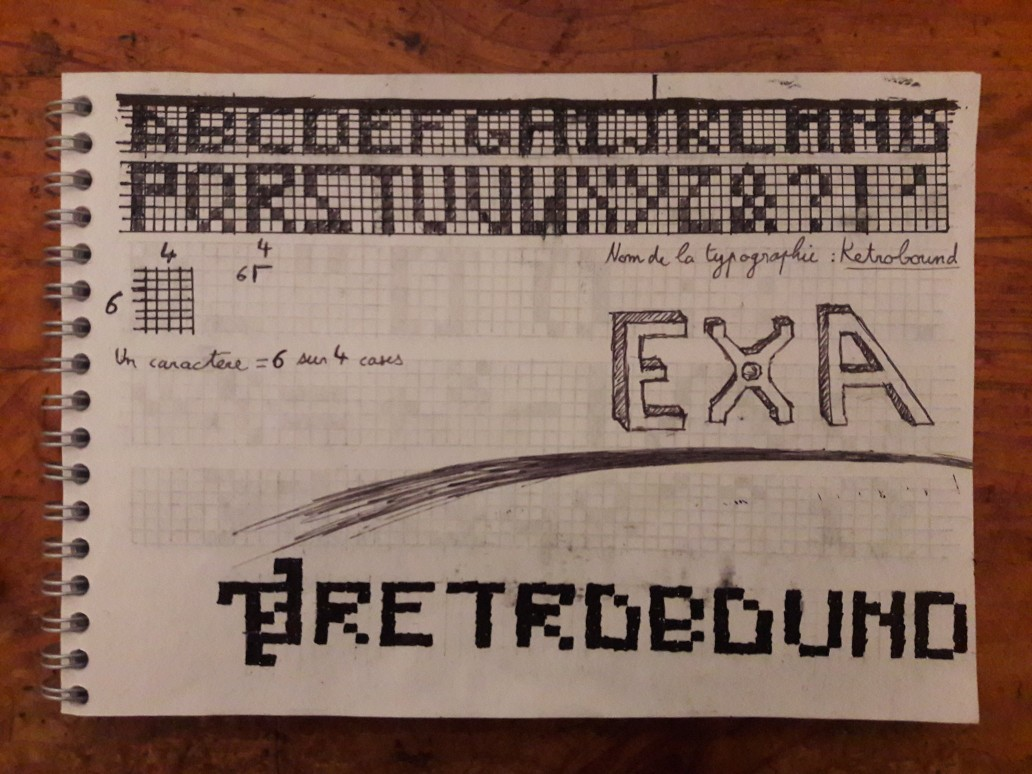 ABCDEFGHIJKLMNO
PQRSTUVWXYZ&?!'
4 4
6 6
Nom de la typographie : Retrobound
Un caractere = 6 sur 4 cases
EXA
RETROBOUND